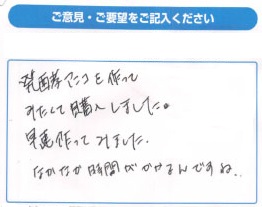 ご意見・ご要望をご記入ください
発酵アンコを作って
みたくて購入しました。
早速作ってみました.
なかなか時間がかかるんですね..